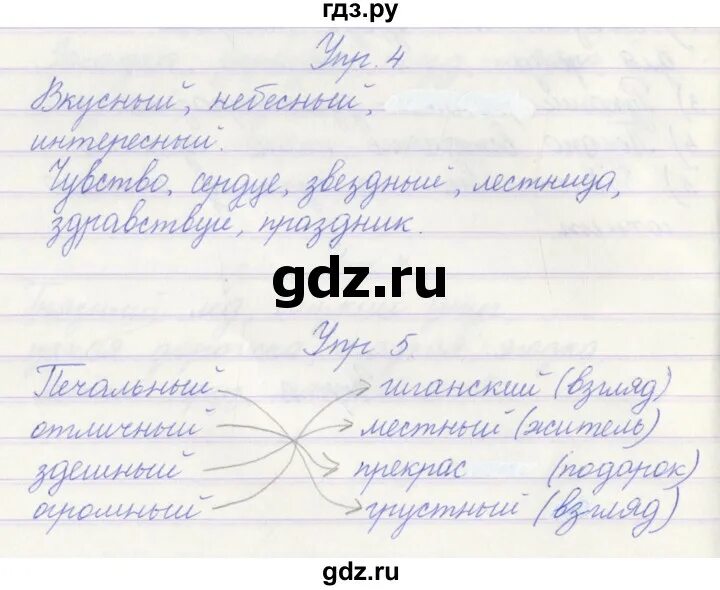 гдз.ру
Упр. 4
Вкусный, небесный,
интересный.
Чувство, сердце, звездный, лестница,
здравствуй, праздник.
gdz.ru
Упр 5.
Печальный гиганский (взгляд)
отличный местный (житель)
здешный прекрас (подарок)
огромный грустный (взгляд)
gdz.ru